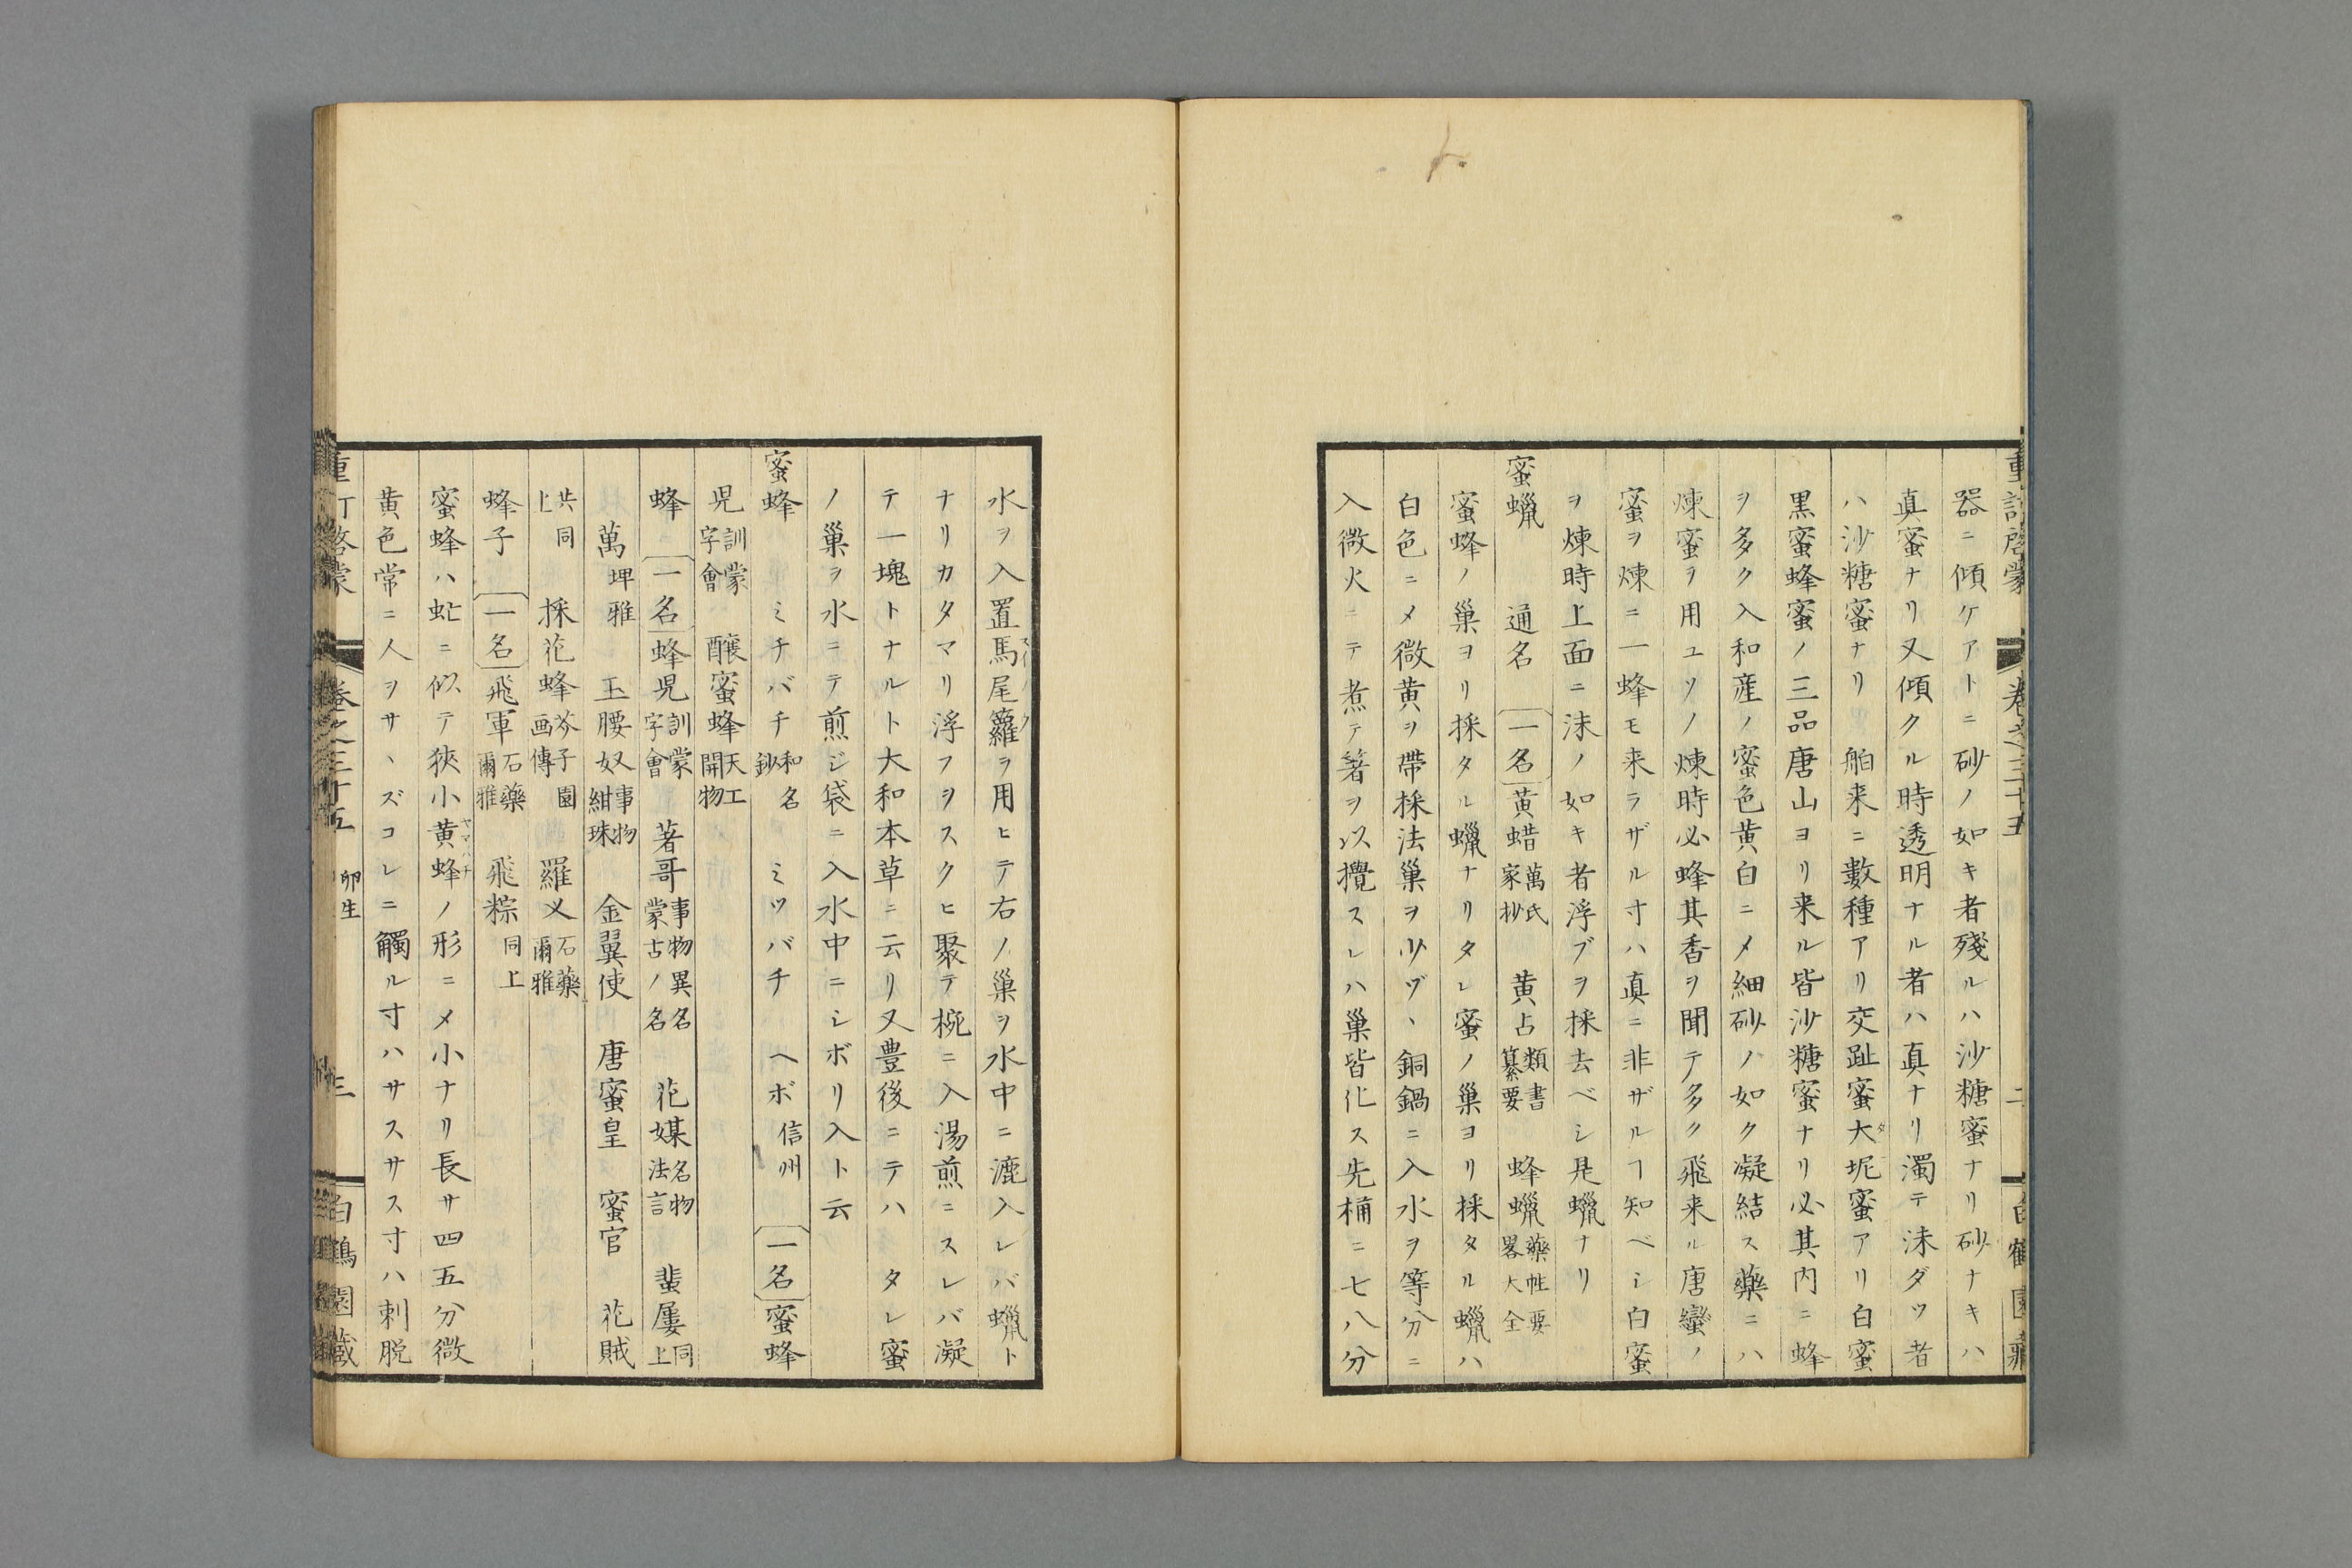 器ニ傾ケアトニ砂ノ如キ者殘ルハ沙糖蜜ナリ砂ナキハ
真蜜ナリ又傾クル時透明ナル者ハ真ナリ濁テ沫ダツ者
ハ沙糖蜜ナリ 舶来ニ數種アリ交趾蜜大坭蜜アリ白蜜
黒蜜蜂蜜ノ三品唐山ヨリ来ル皆沙糖蜜ナリ必其内ニ蜂
ヲ多ク入和産ノ蜜色黄白ニメ細砂ノ如ク凝結ス藥ニハ
煉蜜ヲ用ユソノ煉時必蜂其香ヲ聞テ多ク飛来ル唐蠻ノ
蜜ヲ煉ニ一蜂モ来ラザル寸ハ真ニ非ザルヿ知ベシ白蜜
ヲ煉時上面ニ沫ノ如キ者浮ブヲ採去ベシ是蠟ナリ
蜜蠟 通名 一名 黄蜡 萬氏家抄 黄占 類書纂要 蜂蠟 藥性要畧大全
蜜蜂ノ巢ヨリ採タル蠟ナリタレ蜜ノ巢ヨリ採タル蠟ハ
白色ニメ微黄ヲ帶採法巢ヲ少ヅヽ銅鍋ニ入水ヲ等分ニ
入微火ニテ煮テ箸ヲ以攪スレハ巢皆化ス先桶ニ七八分
水ヲ入置馬尾籮ヲ用ヒテ右ノ巢ヲ水中ニ漉入レバ蠟ト
ナリカタマリ浮フヲスクヒ聚テ椀ニ入湯煎ニスレバ凝
テ一塊トナルト大和本草ニ云リ又豊後ニテハタレ蜜
ノ巢ヲ水ニテ煎ジ袋ニ入水中ニシボリ入ト云
蜜蜂 ミチバチ 和名鈔 ミツバチ ヘボ 信州 一名 蜜蜂
児 訓蒙字會 釀蜜蜂 天工開物
蜂 一名 蜂児 訓蒙字會 著哥 事物異名蒙古ノ名 花媒 名物法言 蜚廔 同上
萬 埤雅 玉腰奴 事物紺珠 金翼使 唐蜜皇 蜜官 花賊
共同上 採花蜂 芥子園画傳 羅义 石藥爾雅
蜂子 一名 飛軍 石藥爾雅 飛粽 同上
蜜蜂ハ虻ニ似テ狹小黄蜂ノ形ニメ小ナリ長サ四五分微
黄色常ニ人ヲサヽズコレニ觸ル寸ハサスサス寸ハ刺脱
重訂啓蒙 卷之三十五 卵生 三 白鶴園藏